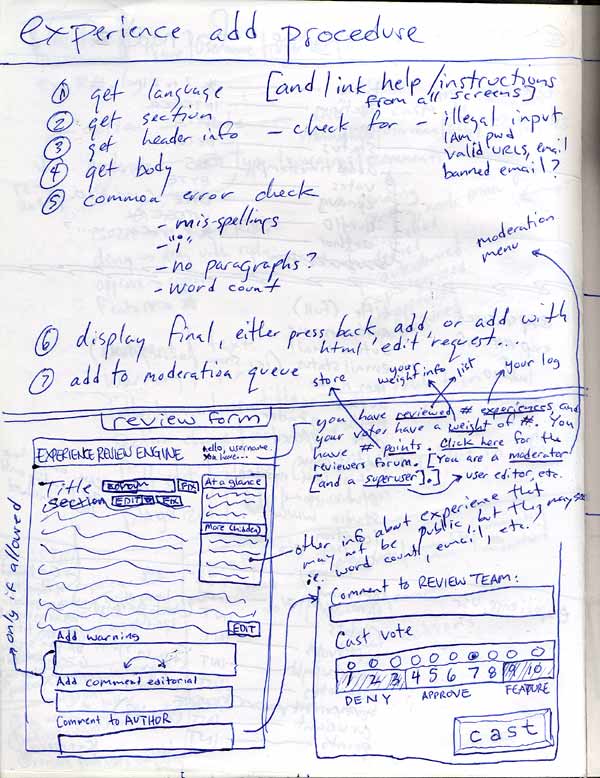 experience add procedure
① get language [and link help/instructions
from all screens]
② get section
③ get header info - check for - illegal input
IAM, pwd
valid URLs, email
banned email?
④ get body
⑤ common error check
- mis-spellings
- "i"
- no paragraphs?
- word count
moderation
menu
⑥ display final, either press back, add, or add with
html edit request...
⑦ add to moderation queue
store
your
weight info
list
your log
review form
you have reviewed # experiences, and
your votes have a weight of #. You
have # points. Click here for the
reviewers forum. [You are a moderator
[and a superuser].]
user editor, etc.
EXPERIENCE REVIEW ENGINE
hello, username.
you have...
Title
Fix
section EDIT Fix
At a glance
More (hidden)
other info about experience that
may not be public, but they may see
i.e. word count, email, etc.
EDIT
only if allowed
Add warning
Add comment editorial
Comment to AUTHOR
Comment to REVIEW TEAM:
Cast vote
1 2 3 4 5 6 7 8 9 10
DENY APPROVE FEATURE
cast